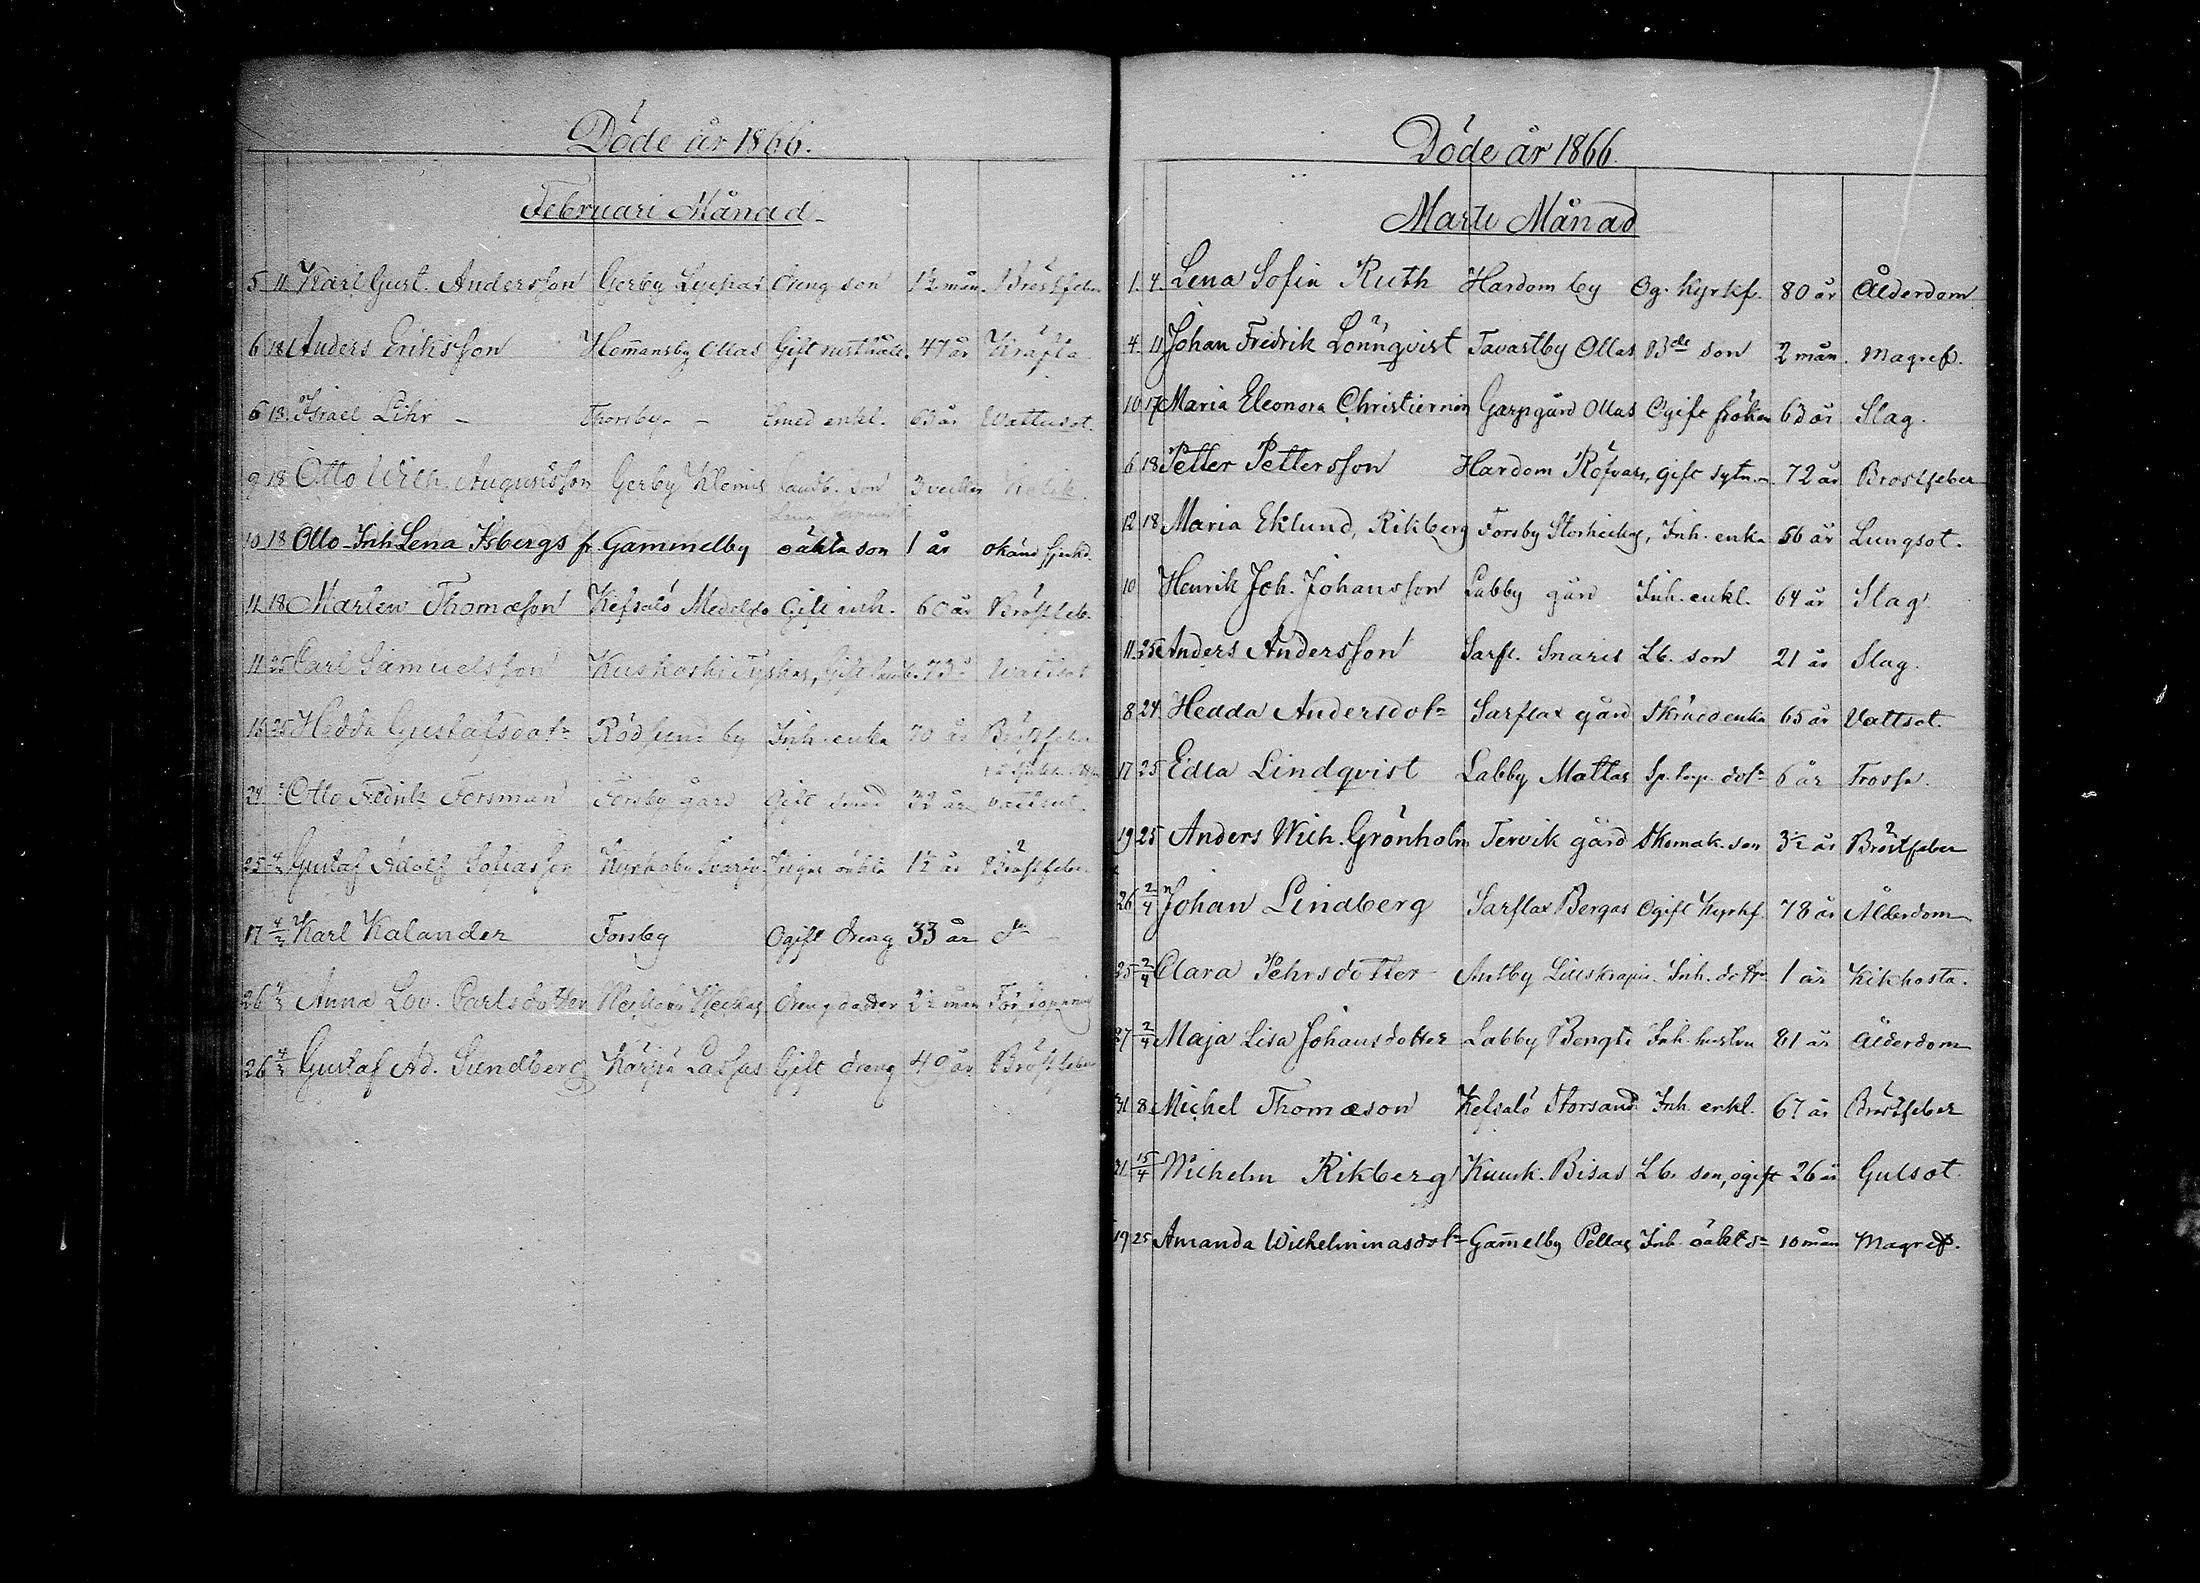 Döde år 1866.
Februari Månad
5 11 Karl Gust. Andersson Gerby Lyckas dreng son 1½ mån. Bröstfeber
6 18 Anders Eriksson Hommansby Ollas Gift rusthåll. 47 år Kräfta
6 18. Israel Lihr Thorsby Smed enkl. 63 år Wattusot.
9 18 Otto Wilh. Augustsson Gerby Klemis landb. son 3 veckor Kolik.
10 18 Otto Inh Lena Isbergs fr. Gammelby oäkta son 1 år okänd sjukd.
11 18 Marten Thomæson Kefsalö Gift inh. 60 år Bröstfeb.
11 25 Carl Samuelsson Kuskoski Tyskas, Gift 73 Wattsot
16 25 Hedda Gustafsdotr Rödsund by Inh. enka 70 år Bröstfeber
24 Otto Fredrik Forsman Forsby gård Gift smed 32 år vattsot.
25 4/3 Gustaf Adolf Sofiasson Kyrkoby pigas oäkta 1½ år Bröstfeber
17 4/3 Karl Kalander Forsby Ogift dreng 33 år do
26 4/3 Anna Lov. Carlsdotter dreng dotter 2½ mån Förstoppning
26 4/3 Gustaf Ad. Sundberg Kärpä Lassas Gift dreng 49 år Bröstfeber
Döde år 1866.
Marti Månad
1. 4. Lena Sofia Ruth Hardom by Og. Kyrkf. 80 år Ålderdom
4. 11 Johan Fredrik Lönnqvist Tavastby Ollas Bde son 2 mån. Magref.
10 17 Maria Eleonora Christiernin Garpgård Ollas Ogift fröken 63 år Slag.
6 18 Petter Pettersson Hardom Röfvars, gift sytn. 72 år Bröstfeber
12 18 Maria Eklund, Rikberg Forsby Inh. enka 56 år Lungsot.
10 Henrik Joh. Johansson Labby gård Inh. enkl. 64 år Slag
11 25 Anders Andersson Sarfl. Snaris Lb. son 21 år Slag.
8 24 Hedda Andersdotr Sarflax gård Skräddenka 65 år Vattsot.
17 25 Edla Lindqvist Labby Mattas dotr 6 år Trossf.
19 25 Anders Wilh. Grönholm Tervik gård Skomak. son 3½ år Bröstfeber
26 2/4 Johan Lindberg Sarflax Bergas Ogift Kyrkf. 78 år Ålderdom
25 2/4 Clara Pehrsdotter Antby Lillskrapu. Inh. dottr 1 år Kikhosta.
27 2/4 Maja Lisa Johansdotter Labby Bengts Inh. hustru 81 år Ålderdom
31 8 Michel Thomæson Kefsalö Storsand Inh. enkl. 67 år Bröstfeber
31 15/4 Wilhelm Rikberg Kuusk. Bisas Lb. son, ogift 26 år Gulsot
19 25 Amanda Wilhelminasdotr Gammelby Pellas Inh. oäkt dr 10 mån Magref.